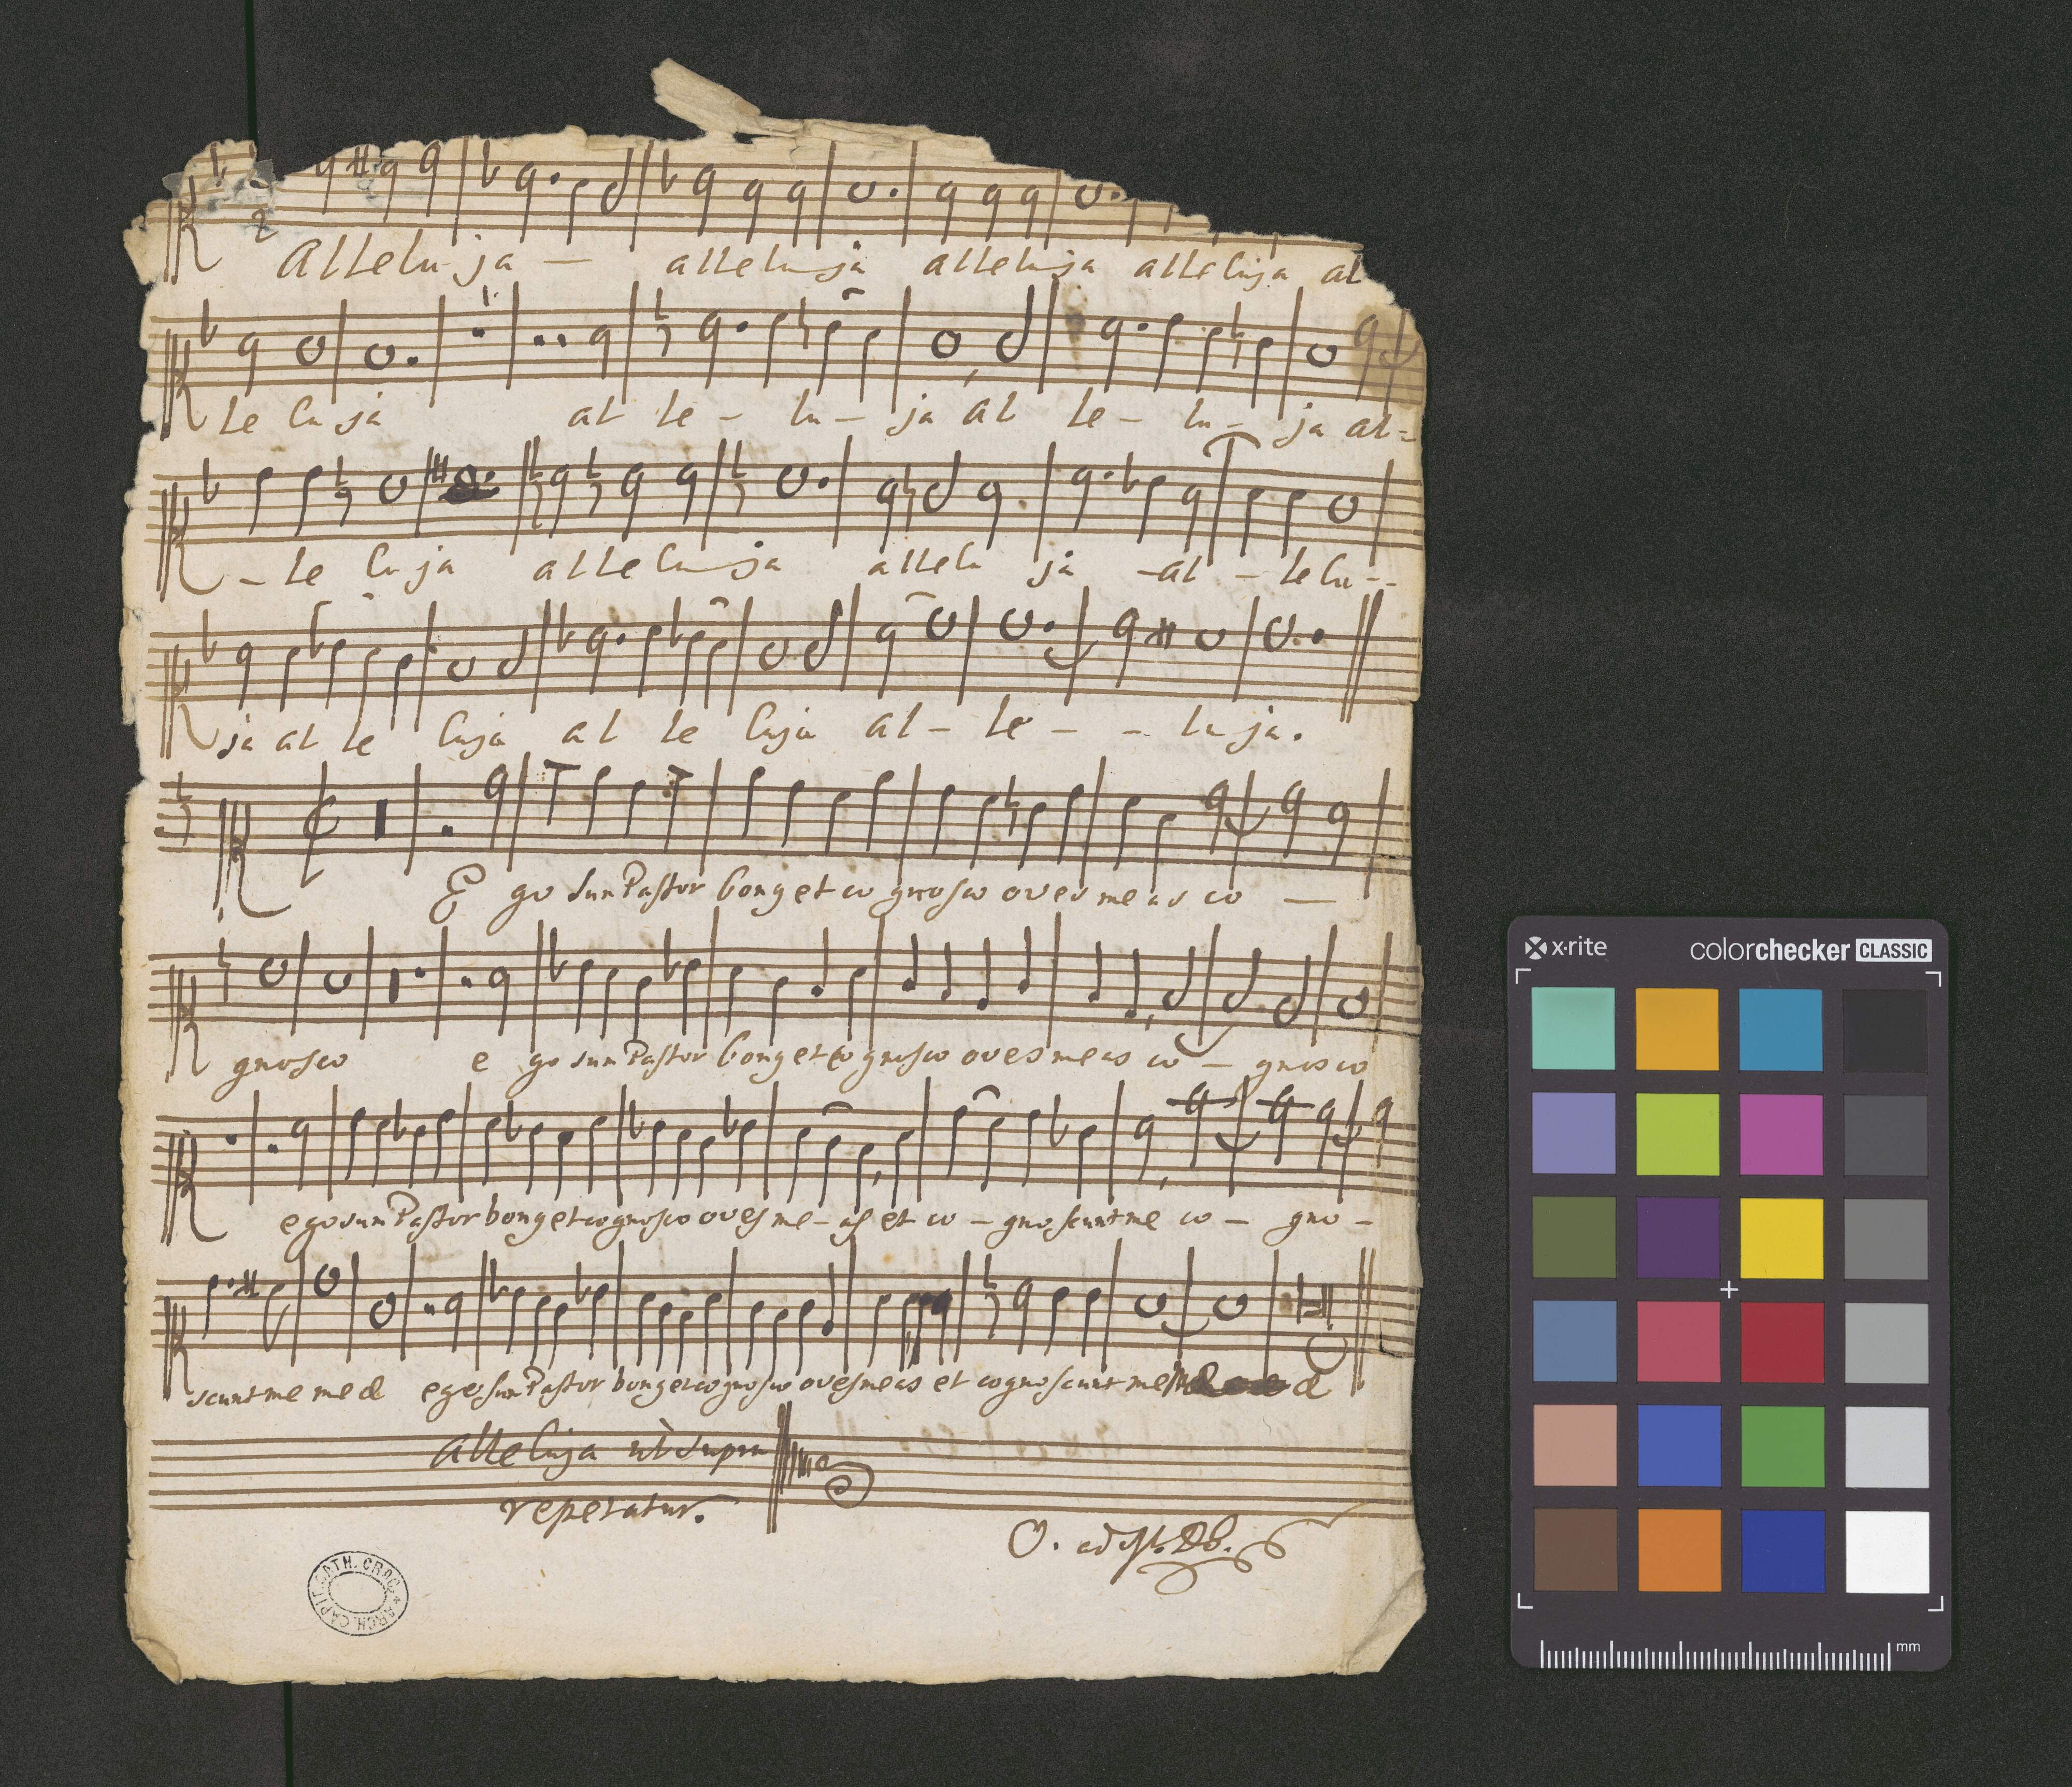 Alleluja — alleluja alleluja alleluja al
le luja al le - lu - ja al le - lu - ja al-
- le luja alleluja allelu ja - al - lelu --
ja al le luja al le luja al - le - - luja.
Ego sum Pastor bonꝰ et cognosco oves meas co —
gnosco ego sum Pastor bonꝰ et cognosco oves meas co - gnosco
ego sum Pastor bonꝰ et cognosco oves me - as et co - gnoscunt me co - gno -
scunt me meæ ego sum Pastor bonꝰ et cognosco oves meas et cognoscunt me æ
Alleluja ut supra
repetatur.
O. ad
ARCH. CAPIT. CATH. CRAC.
x·rite
colorchecker CLASSIC
mm